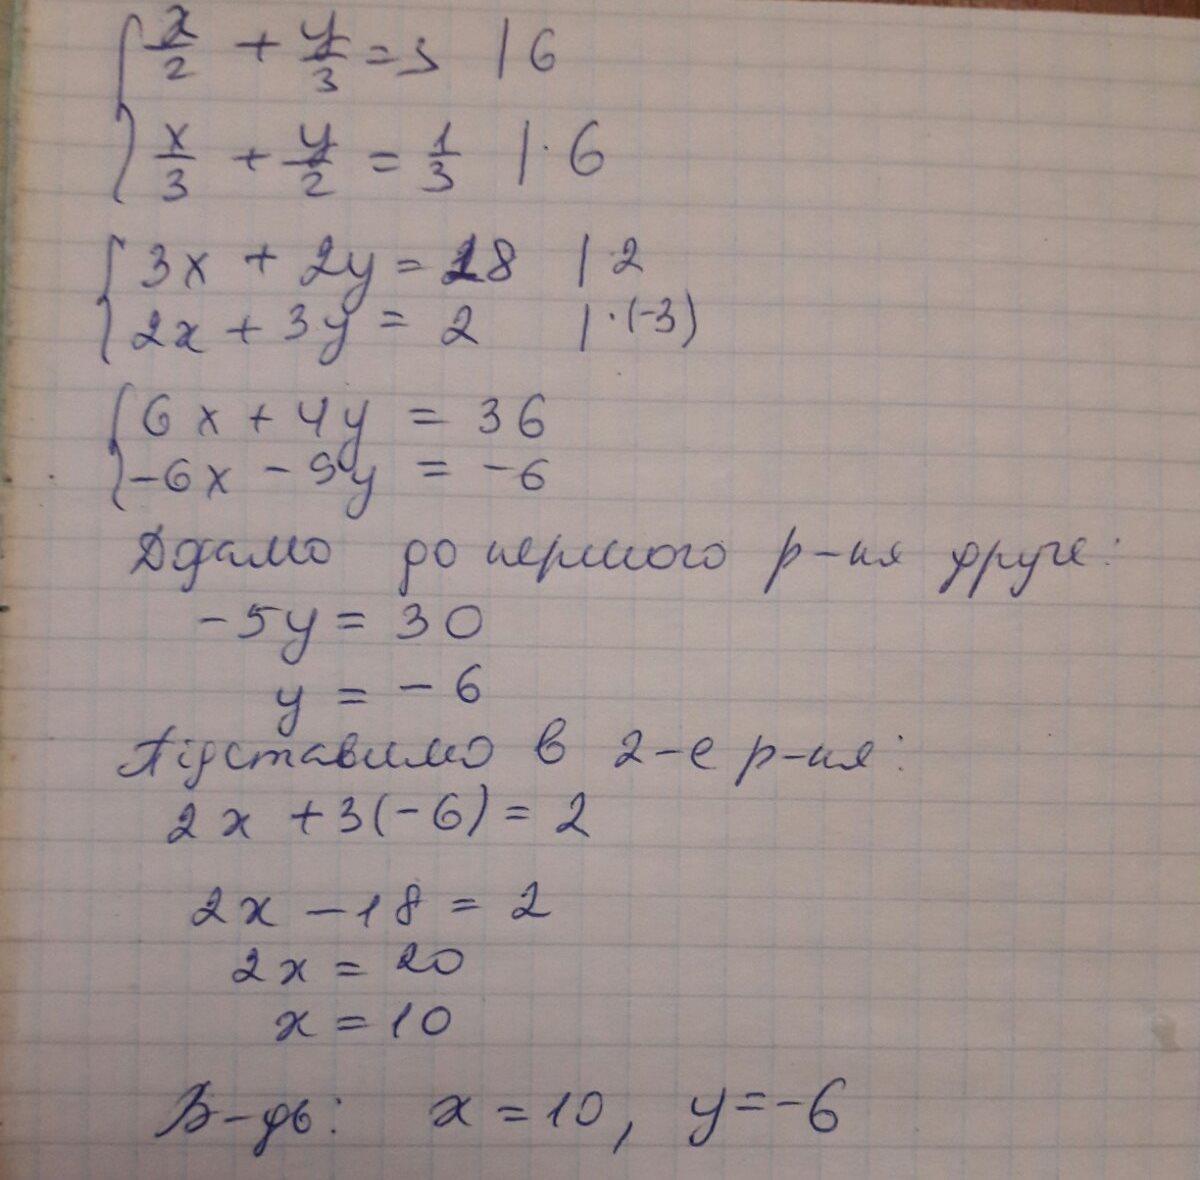 x/2 + y/3 = 3 | 6
x/3 + y/2 = 1/3 | · 6
3x + 2y = 18 | · 2
2x + 3y = 2 | · (-3)
6x + 4y = 36
-6x - 9y = -6
Ддамо до першого р-ня друге:
-5y = 30
y = -6
Підставимо в 2-е р-ня:
2x + 3(-6) = 2
2x - 18 = 2
2x = 20
x = 10
В-дь: x = 10, y = -6